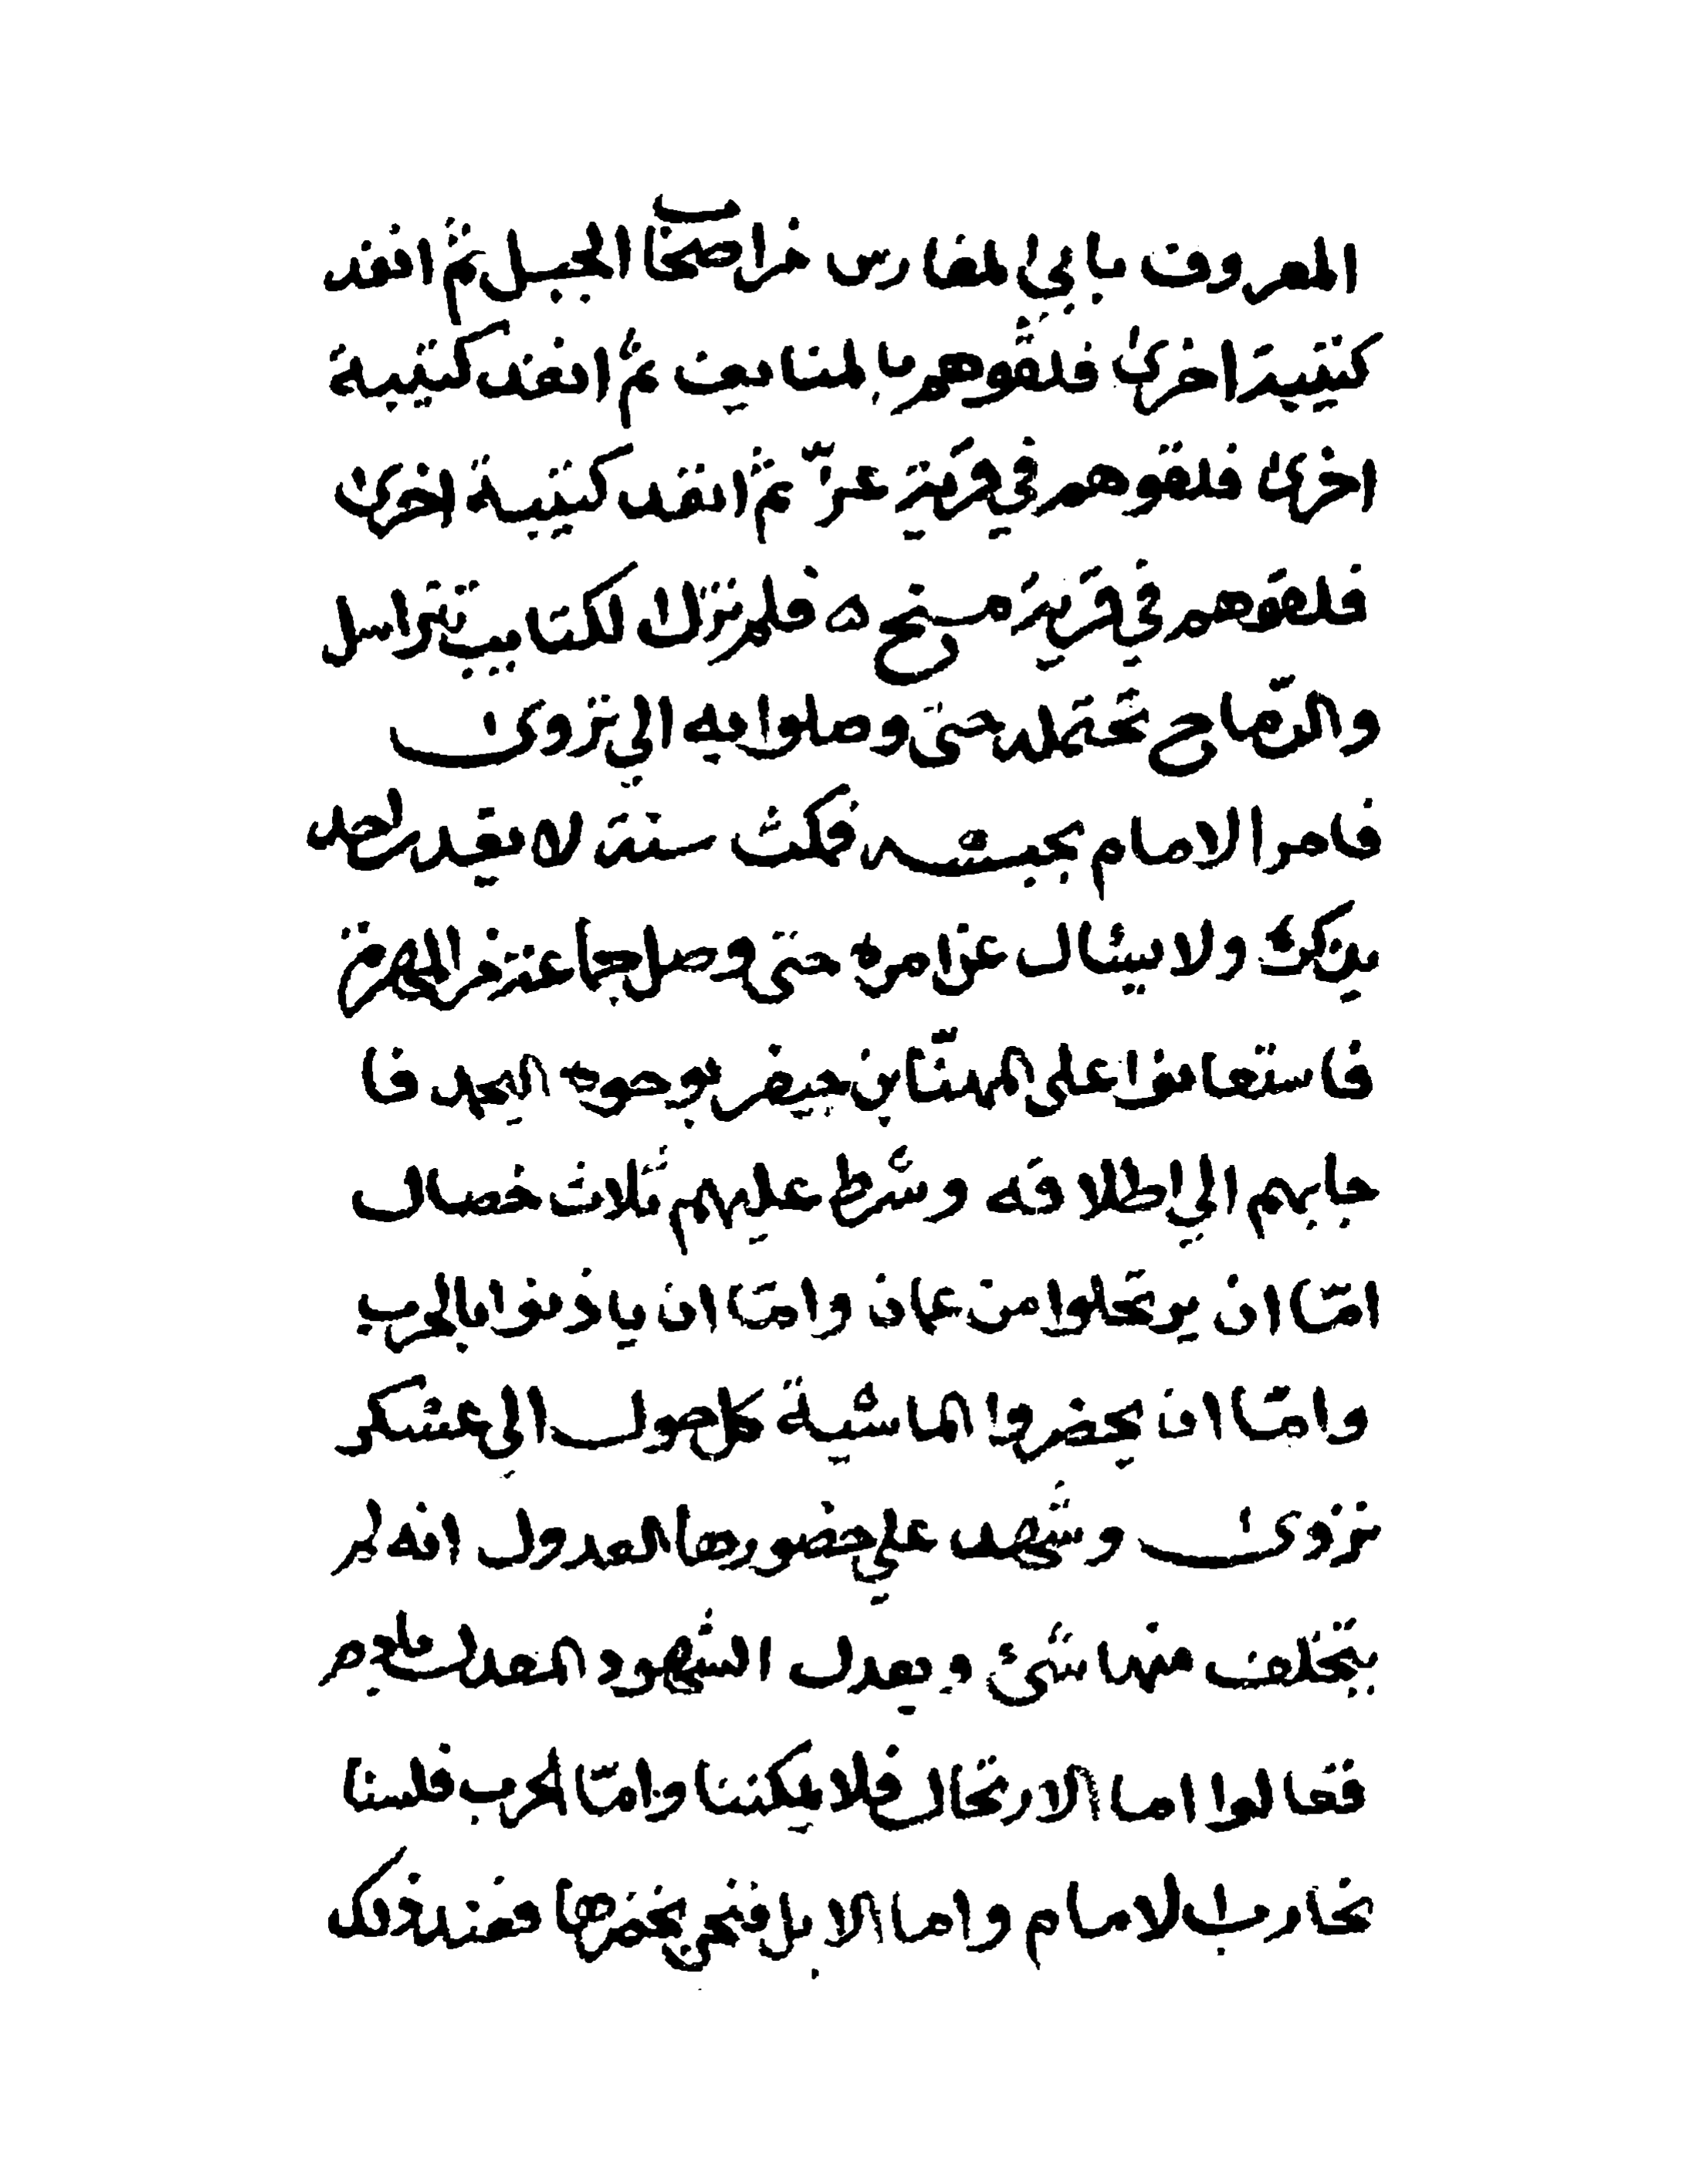 المعروف بابي المقارس من اصحاب الجبل ثم انفذ
كتيبة اخرى فلقوهم بالمنايف ثم انفذ كتيبة
اخرى فلقوهم في قرية عزّ ثم انفذ كتيبة اخرى
فلقوهم في قرية منح ه فلم تزل الكتايب تتراسل
والرّماح تحتمله حتى وصلوا به الي نزوى
فامر الامام بحبسه فمكث سنة لا يقدر احد
يذكره ولا يسئال عن امره حتى وصل جماعة من المهرة
فاستعانوا على المهنّا بن جيفر بوجوه اليحمد فا
جابهم الي اطلاقه وشرط عليهم ثلاث خصال
امّا ان يرتحلوا من عمان وامّا ان ياذنوا بالحرب
وامّا ان يحضروا الماشية كل حول الى عسكر
نزوى وشهد علي حضورها العدول انه لم
يتخلف منها شئ ويعدل الشهود المعدلون بادم
فقالوا اما الارتحال فلا يمكننا وامّا الحرب فلسنا
نحارب الامام واما الابل فنحن نحضرها فعند ذلك